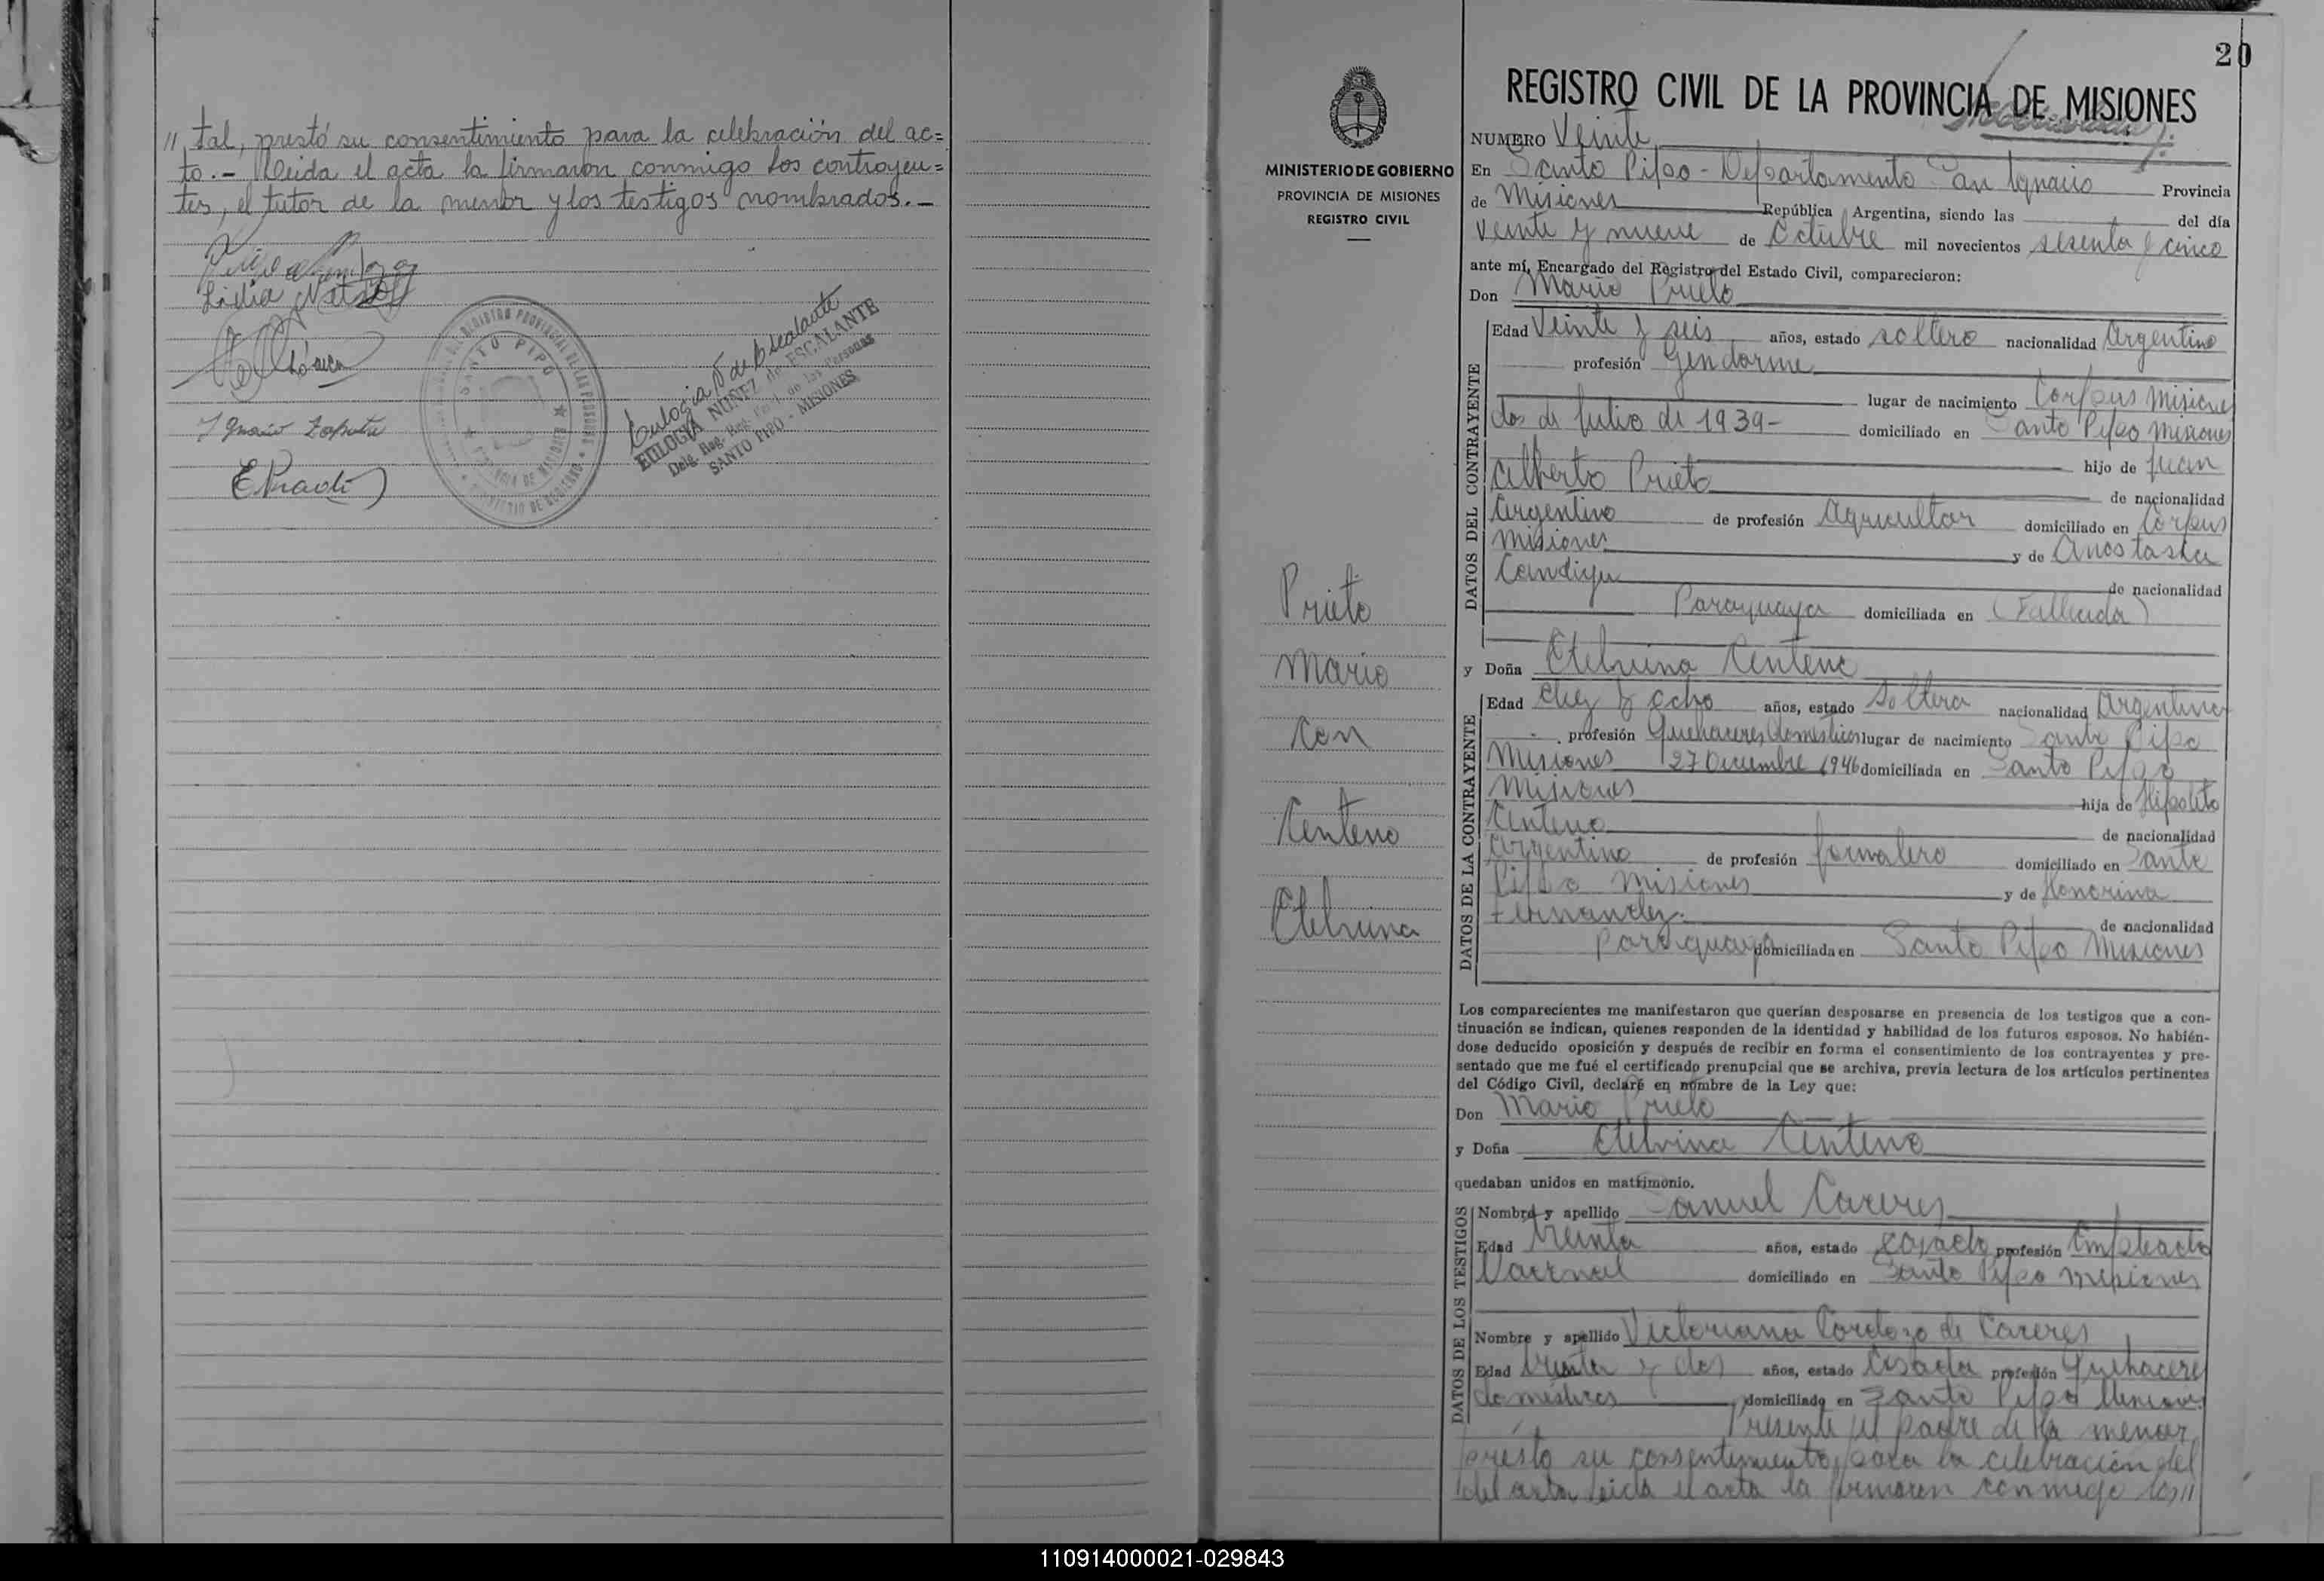 // tal, prestó su consentimiento para la celebración del ac=
to.- Leida el acta la firmaron conmigo los contrayen=
tes, el tutor de la menor y los testigos nombrados.-
Lidia
Ignacio Zapata
E Prado
SANTO PIPO
Eulogia N de Escalante
EULOGIA NUÑEZ de ESCALANTE
Delg. Reg. Prov. de las Personas
SANTO PIPO - MISIONES
MINISTERIO DE GOBIERNO
PROVINCIA DE MISIONES
REGISTRO CIVIL
Prieto
Mario
Con
Centeno
Etelvina
20
REGISTRO CIVIL DE LA PROVINCIA DE MISIONES
NUMERO Veinte
En Santo Pipo - Departamento San Ignacio Provincia
de Misiones República Argentina, siendo las del día
veinte y nueve de Octubre mil novecientos sesenta y cinco
ante mí, Encargado del Registro del Estado Civil, comparecieron:
Don Mario Prieto
DATOS DEL CONTRAYENTE
Edad Veinte y seis años, estado soltero nacionalidad Argentino
profesión Gendarme
lugar de nacimiento Corpus Misiones
dos de Julio de 1939- domiciliado en Santo Pipo Misiones
hijo de Juan
Alberto Prieto de nacionalidad
Argentino de profesión Agricultor domiciliado en Corpus
Misiones y de Anastasia
Candiya de nacionalidad
Paraguaya domiciliada en (Fallecida)
y Doña Etelvina Centeno
DATOS DE LA CONTRAYENTE
Edad diez y ocho años, estado Soltera nacionalidad Argentina
profesión Quehaceres Domésticos lugar de nacimiento Santo Pipo
Misiones 27 Diciembre 1946 domiciliada en Santo Pipo
Misiones hija de Hipolito
Centeno de nacionalidad
Argentino de profesión Jornalero domiciliado en Santo
Pipo Misiones y de Honorina
Fernandez. de nacionalidad
Paraguaya domiciliada en Santo Pipo Misiones
Los comparecientes me manifestaron que querían desposarse en presencia de los testigos que a con-
tinuación se indican, quienes responden de la identidad y habilidad de los futuros esposos. No habién-
dose deducido oposición y después de recibir en forma el consentimiento de los contrayentes y pre-
sentado que me fué el certificado prenupcial que se archiva, previa lectura de los artículos pertinentes
del Código Civil, declaré en nombre de la Ley que:
Don Mario Prieto
y Doña Etelvina Centeno
quedaban unidos en matrimonio.
DATOS DE LOS TESTIGOS
Nombre y apellido Samuel Caceres
Edad treinta años, estado casado profesión Empleado
Nacional domiciliado en Santo Pipo Misiones
Nombre y apellido Victoriana Cardozo de Caceres
Edad treinta y dos años, estado Casada profesión Quehaceres
domésticos domiciliado en Santo Pipo Misiones
Presente el padre de la menor
presto su consentimiento para la celebración del
del acta leida el acta la firmaron conmigo los //
110914000021-029843